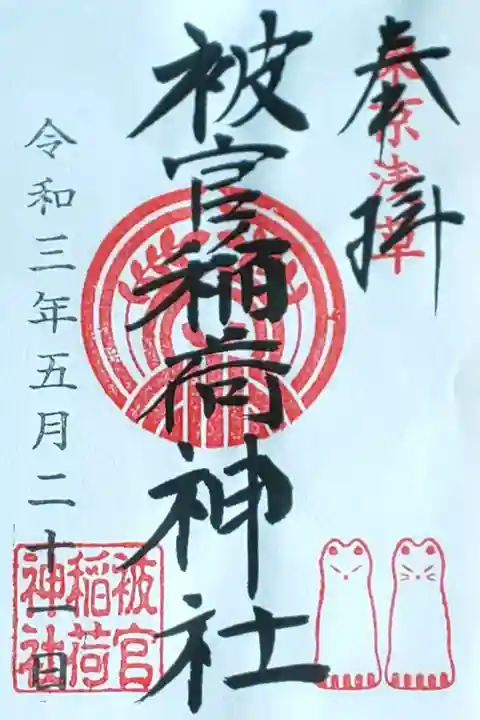 奉拝
東京浅草
被官稲荷神社
令和三年五月二十一日
被官
稲荷
神社